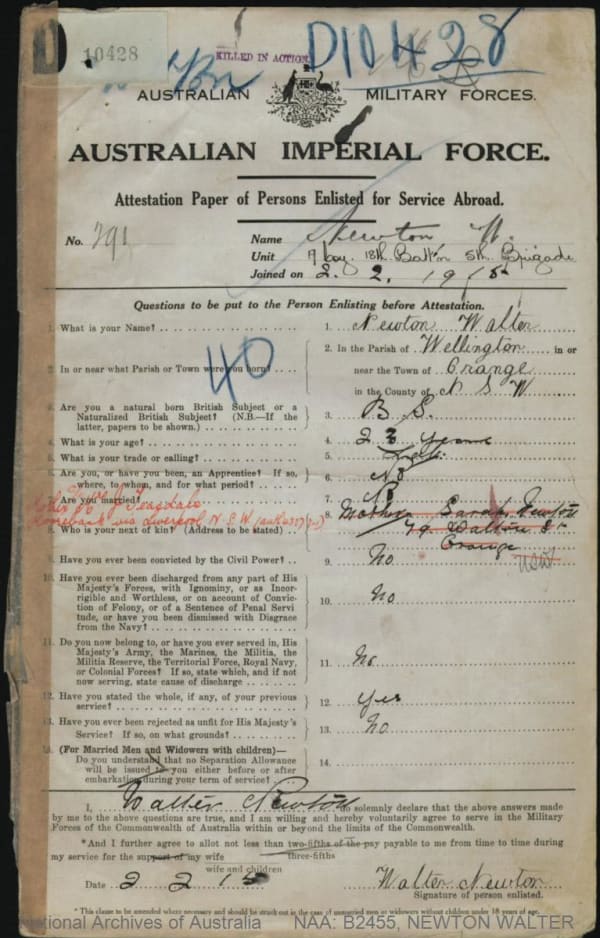 10428
KILLED IN ACTION
D10428
AUSTRALIAN MILITARY FORCES.
AUSTRALIAN IMPERIAL FORCE.
Attestation Paper of Persons Enlisted for Service Abroad.
No. 791 Name Newton W.
Unit A Coy. 18th Battn 5th Brigade
Joined on 2. 2. 1915
Questions to be put to the Person Enlisting before Attestation.
1. What is your Name? 1. Newton Walter
2. In or near what Parish or Town were you born? 2. In the Parish of Wellington in or
near the Town of Orange
in the County of N S W
40
3. Are you a natural born British Subject or a
Naturalized British Subject? (N.B.—If the
latter, papers to be shown.) 3. B S.
4. What is your age? 4. 23 years
5. What is your trade or calling? 5.
6. Are you, or have you been, an Apprentice? If so,
where, to whom, and for what period? 6. No
7. Are you married? 7. No
J Teasdale
via Liverpool N.S.W
8. Who is your next of kin? (Address to be stated) 8. Mother Sarah Newton
79 Dalton St
Orange
NSW
9. Have you ever been convicted by the Civil Power? 9. No
10. Have you ever been discharged from any part of His
Majesty's Forces, with Ignominy, or as Incor-
rigible and Worthless, or on account of Convic-
tion of Felony, or of a Sentence of Penal Servi
tude, or have you been dismissed with Disgrace
from the Navy? 10. No
11. Do you now belong to, or have you ever served in, His
Majesty's Army, the Marines, the Militia, the
Militia Reserve, the Territorial Force, Royal Navy,
or Colonial Forces? If so, state which, and if not
now serving, state cause of discharge 11. No
12. Have you stated the whole, if any, of your previous
service? 12. Yes
13. Have you ever been rejected as unfit for His Majesty's
Service? If so, on what grounds? 13. No
14. (For Married Men and Widowers with children)—
Do you understand that no Separation Allowance
will be issued to you either before or after
embarkation during your term of service? 14.
I, Walter Newton do solemnly declare that the above answers made
by me to the above questions are true, and I am willing and hereby voluntarily agree to serve in the Military
Forces of the Commonwealth of Australia within or beyond the limits of the Commonwealth.
*And I further agree to allot not less than two-fifths of the pay payable to me from time to time during
three-fifths
my service for the support of my wife
wife and children
Date 2 2 15 Walter Newton
Signature of person enlisted.
*This clause to be amended where necessary and should be struck out in the case of unmarried men or widowers without children under 18 years of age.
National Archives of Australia NAA: B2455, NEWTON WALTER